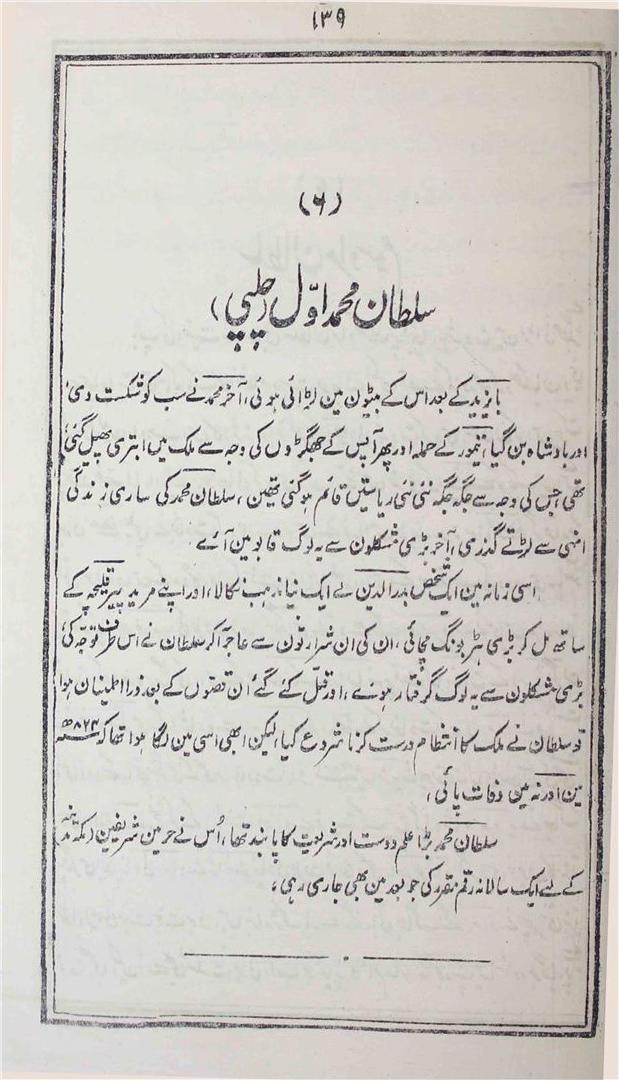 ۱۳۹
(۶)
سلطان محمد اوّل (چلپی)
بایزید کے بعد اس کے بیٹون مین لڑائی ہوئی، آخر محمد نے سب کو شکست دی،
اور بادشاہ بن گیا، تیمور کے حملہ اور پھر آپس کے جھگڑوں کی وجہ سے ملک میں ابتری پھیل گئی
تھی، جس کی وجہ سے جگہ جگہ نئی نئی ریاستیں قائم ہو گئی تھین، سلطان محمد کی ساری زندگی
انہی سے لڑتے گذری، آخر بڑی مشکلون سے یہ لوگ قابو مین آئے۔
اسی زمانہ مین ایک شخص بدر الدین نے ایک نیا مذہب نکالا، اور اپنے مرید پیر قلیجہ کے
ساتھ مل کر بڑی ہڑبونگ مچائی، ان کی ان شرارتون سے عاجز آکر سلطان نے اس طرف توجہ کی،
بڑی مشکلون سے یہ لوگ گرفتار ہوئے، اور قتل کئے گئے، ان قصّوں کے بعد ذرا اطمینان ہوا
تو سلطان نے ملک کا انتظام درست کرنا شروع کیا لیکن ابھی اسی مین لگا ہوا تھا کہ ۸۲۴ھ
مین ادرنہ مین وفات پائی،
سلطان محمد بڑا علم دوست اور شریعت کا پابند تھا، اُس نے حرمین شریفین (مکہ مدینہ
کے لئے ایک سالانہ رقم مقرر کی جو بعد مین بھی جاری رہی،